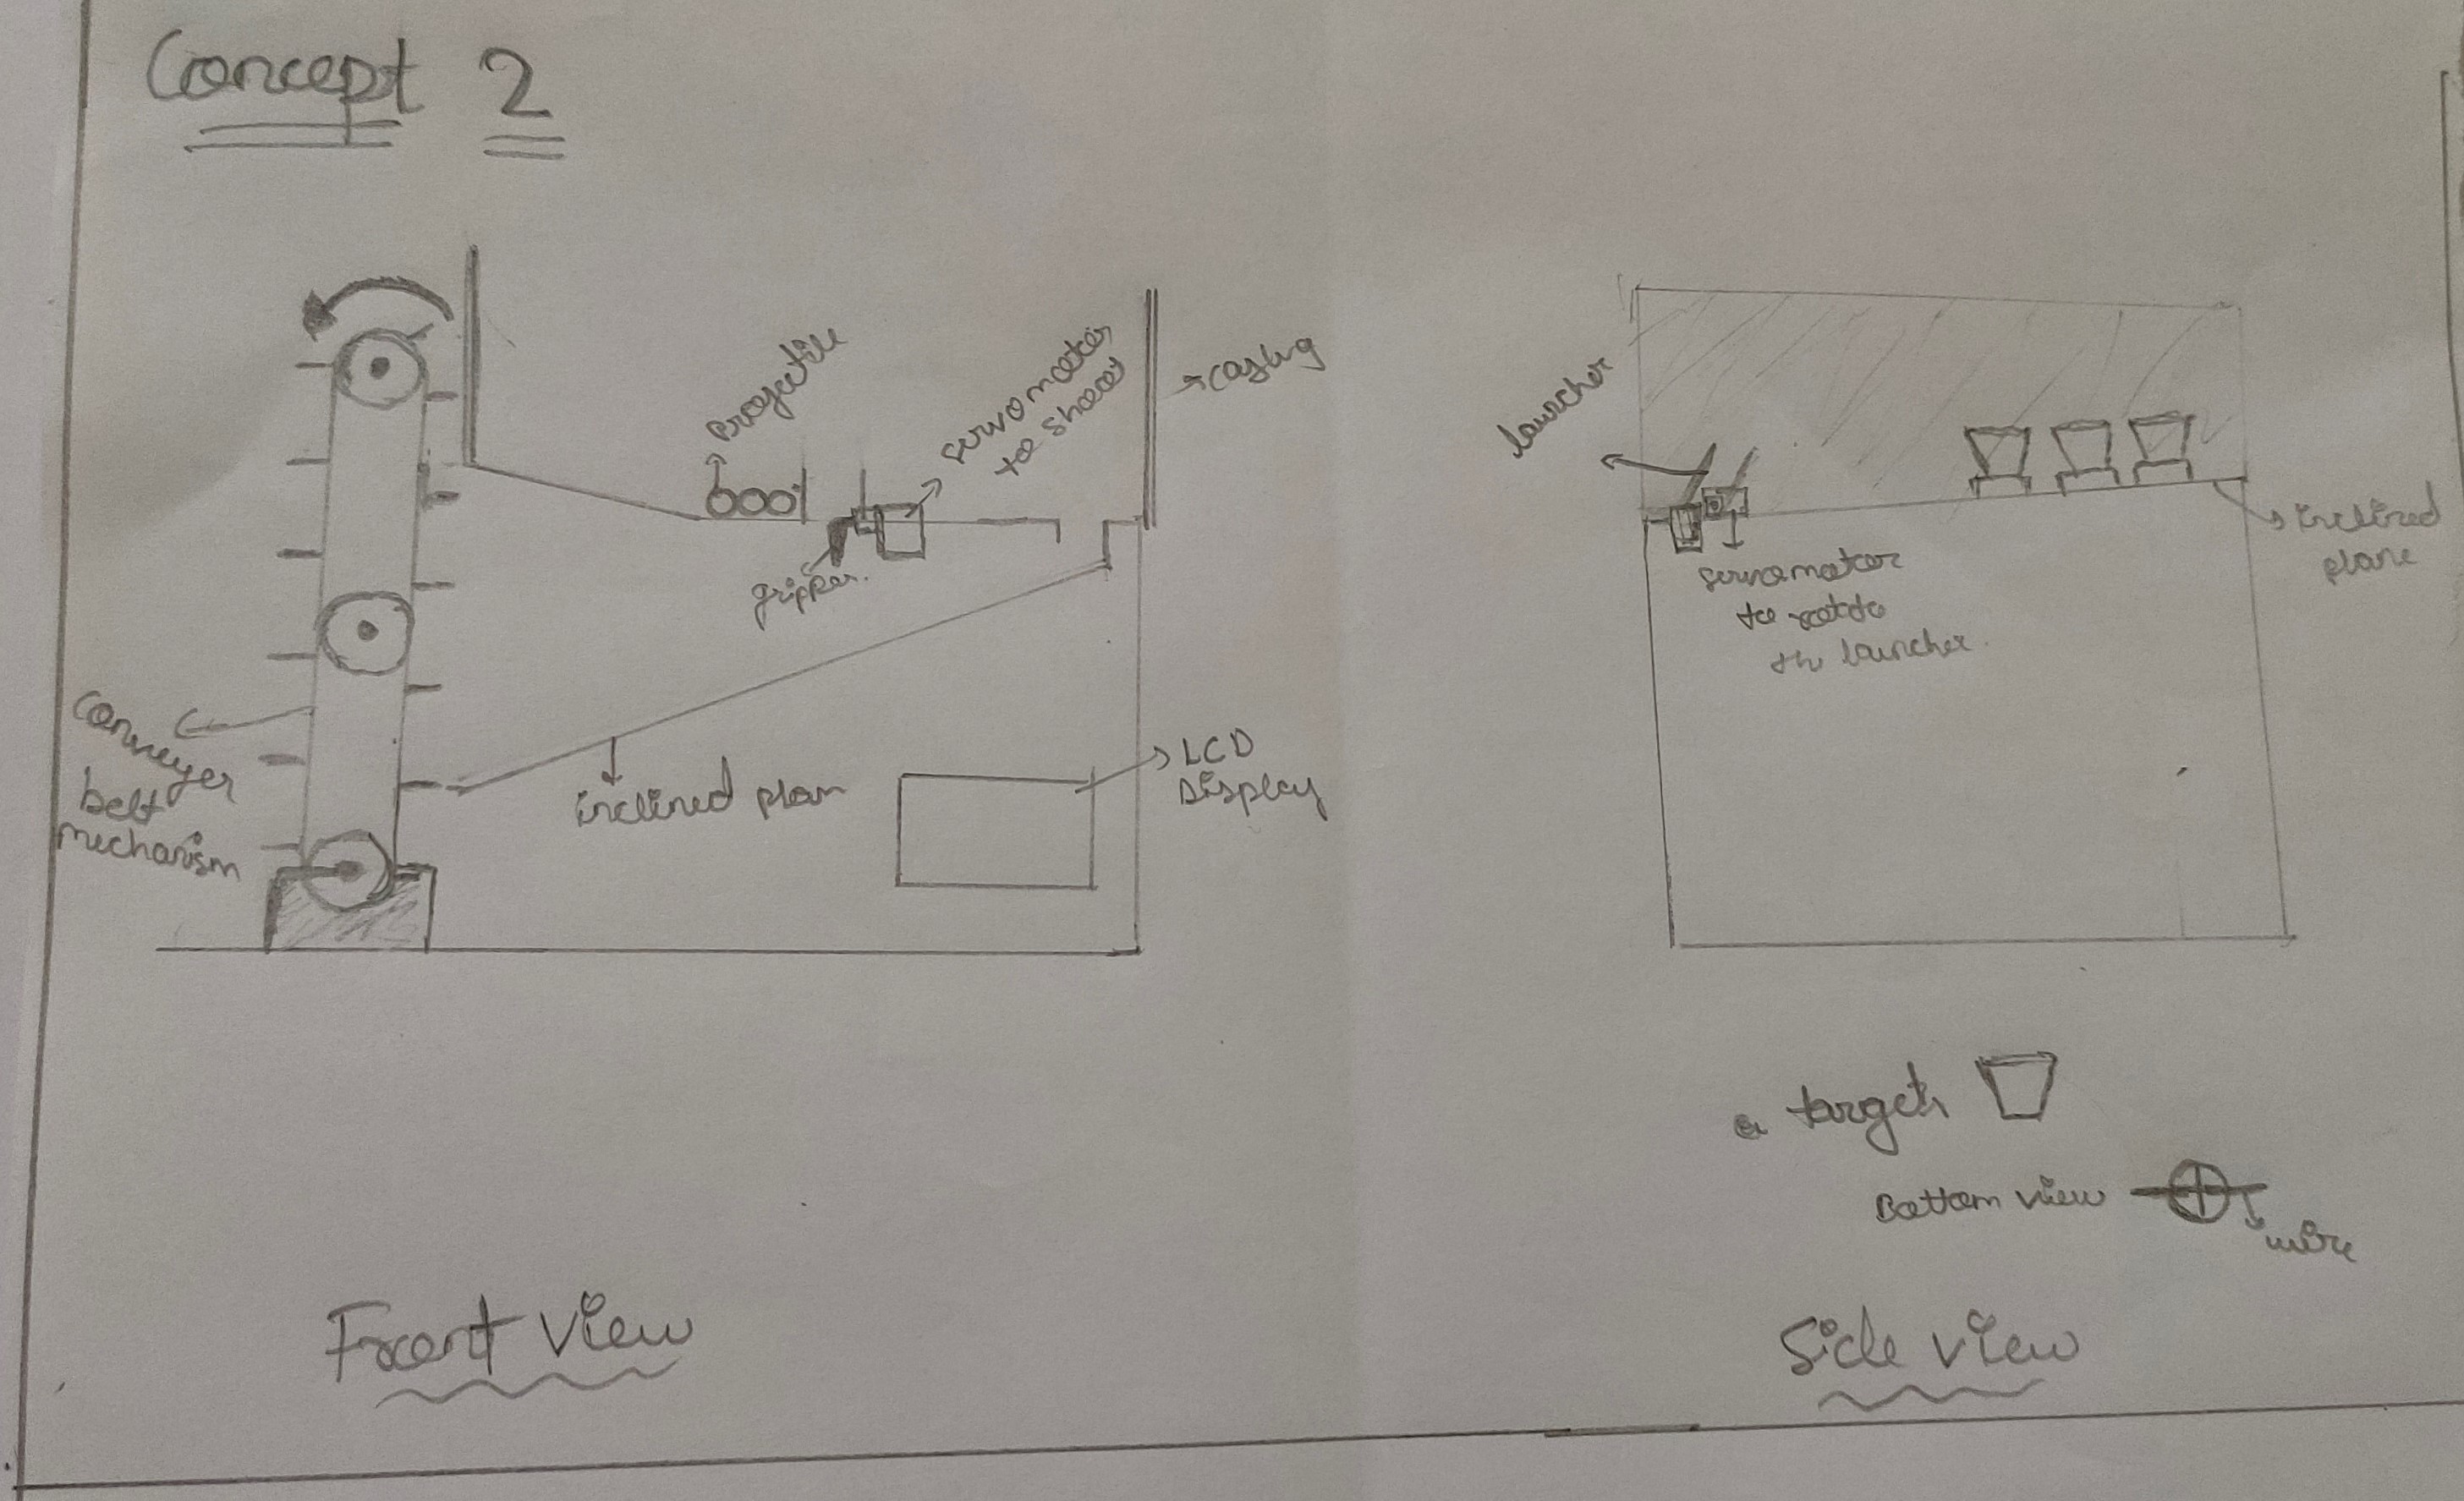 Concept 2
Projectile
servomotor
to shoot
casing
gripper.
Conveyer
belt
mechanism
inclined plan
LCD
Display
Front view
launcher
servomotor
to rotate
the launcher.
inclined
plane
targets
Bottom view
wire
Side view